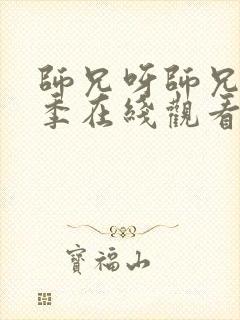 師兄呀師兄
季在綫觀看
寶福山